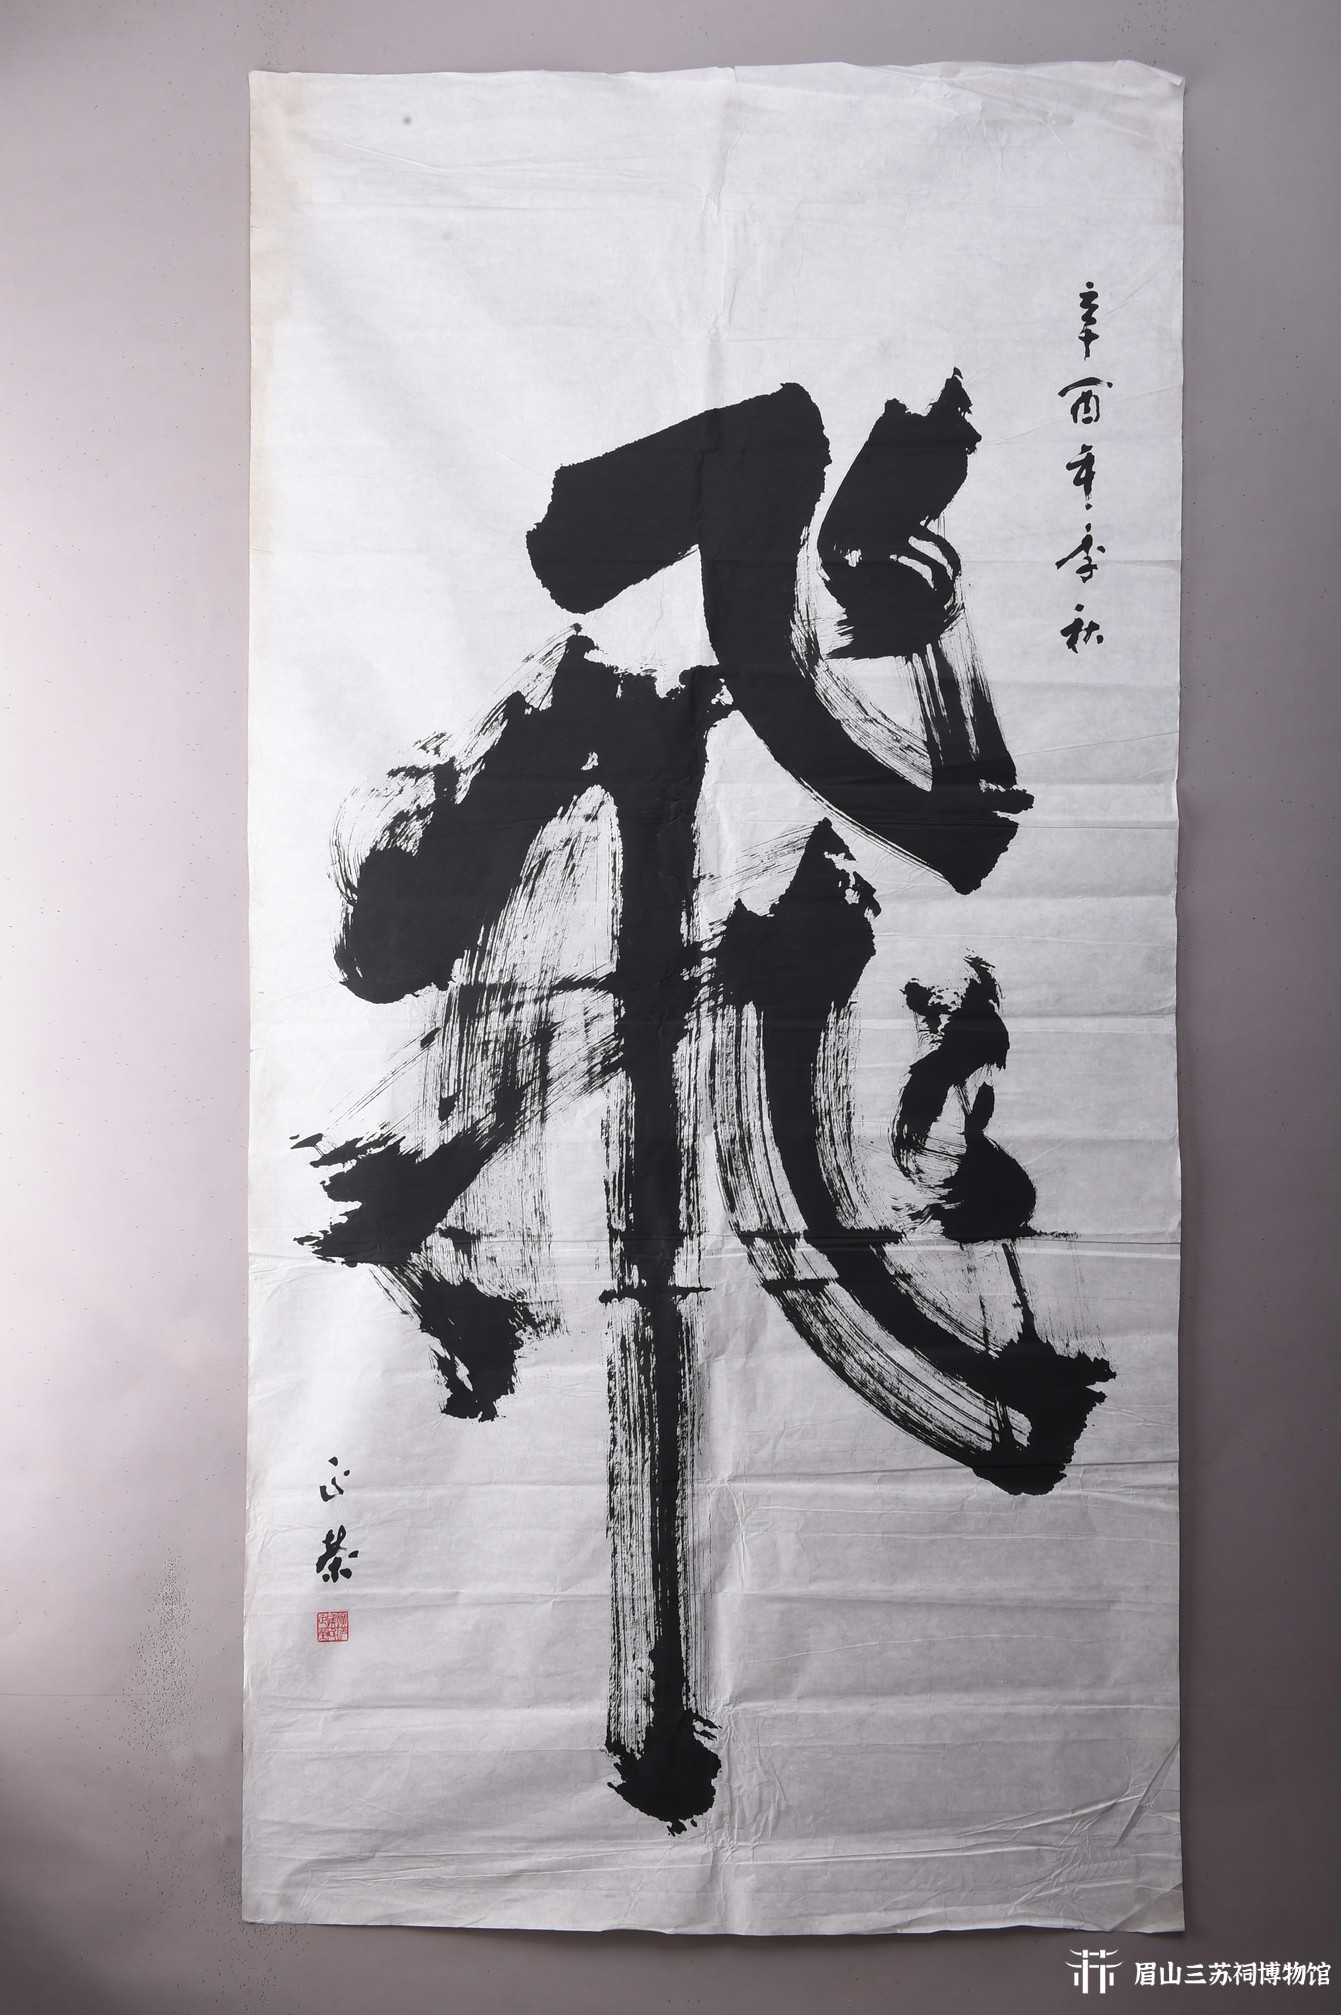 辛酉年季秋
飛
正荣
眉山三苏祠博物馆